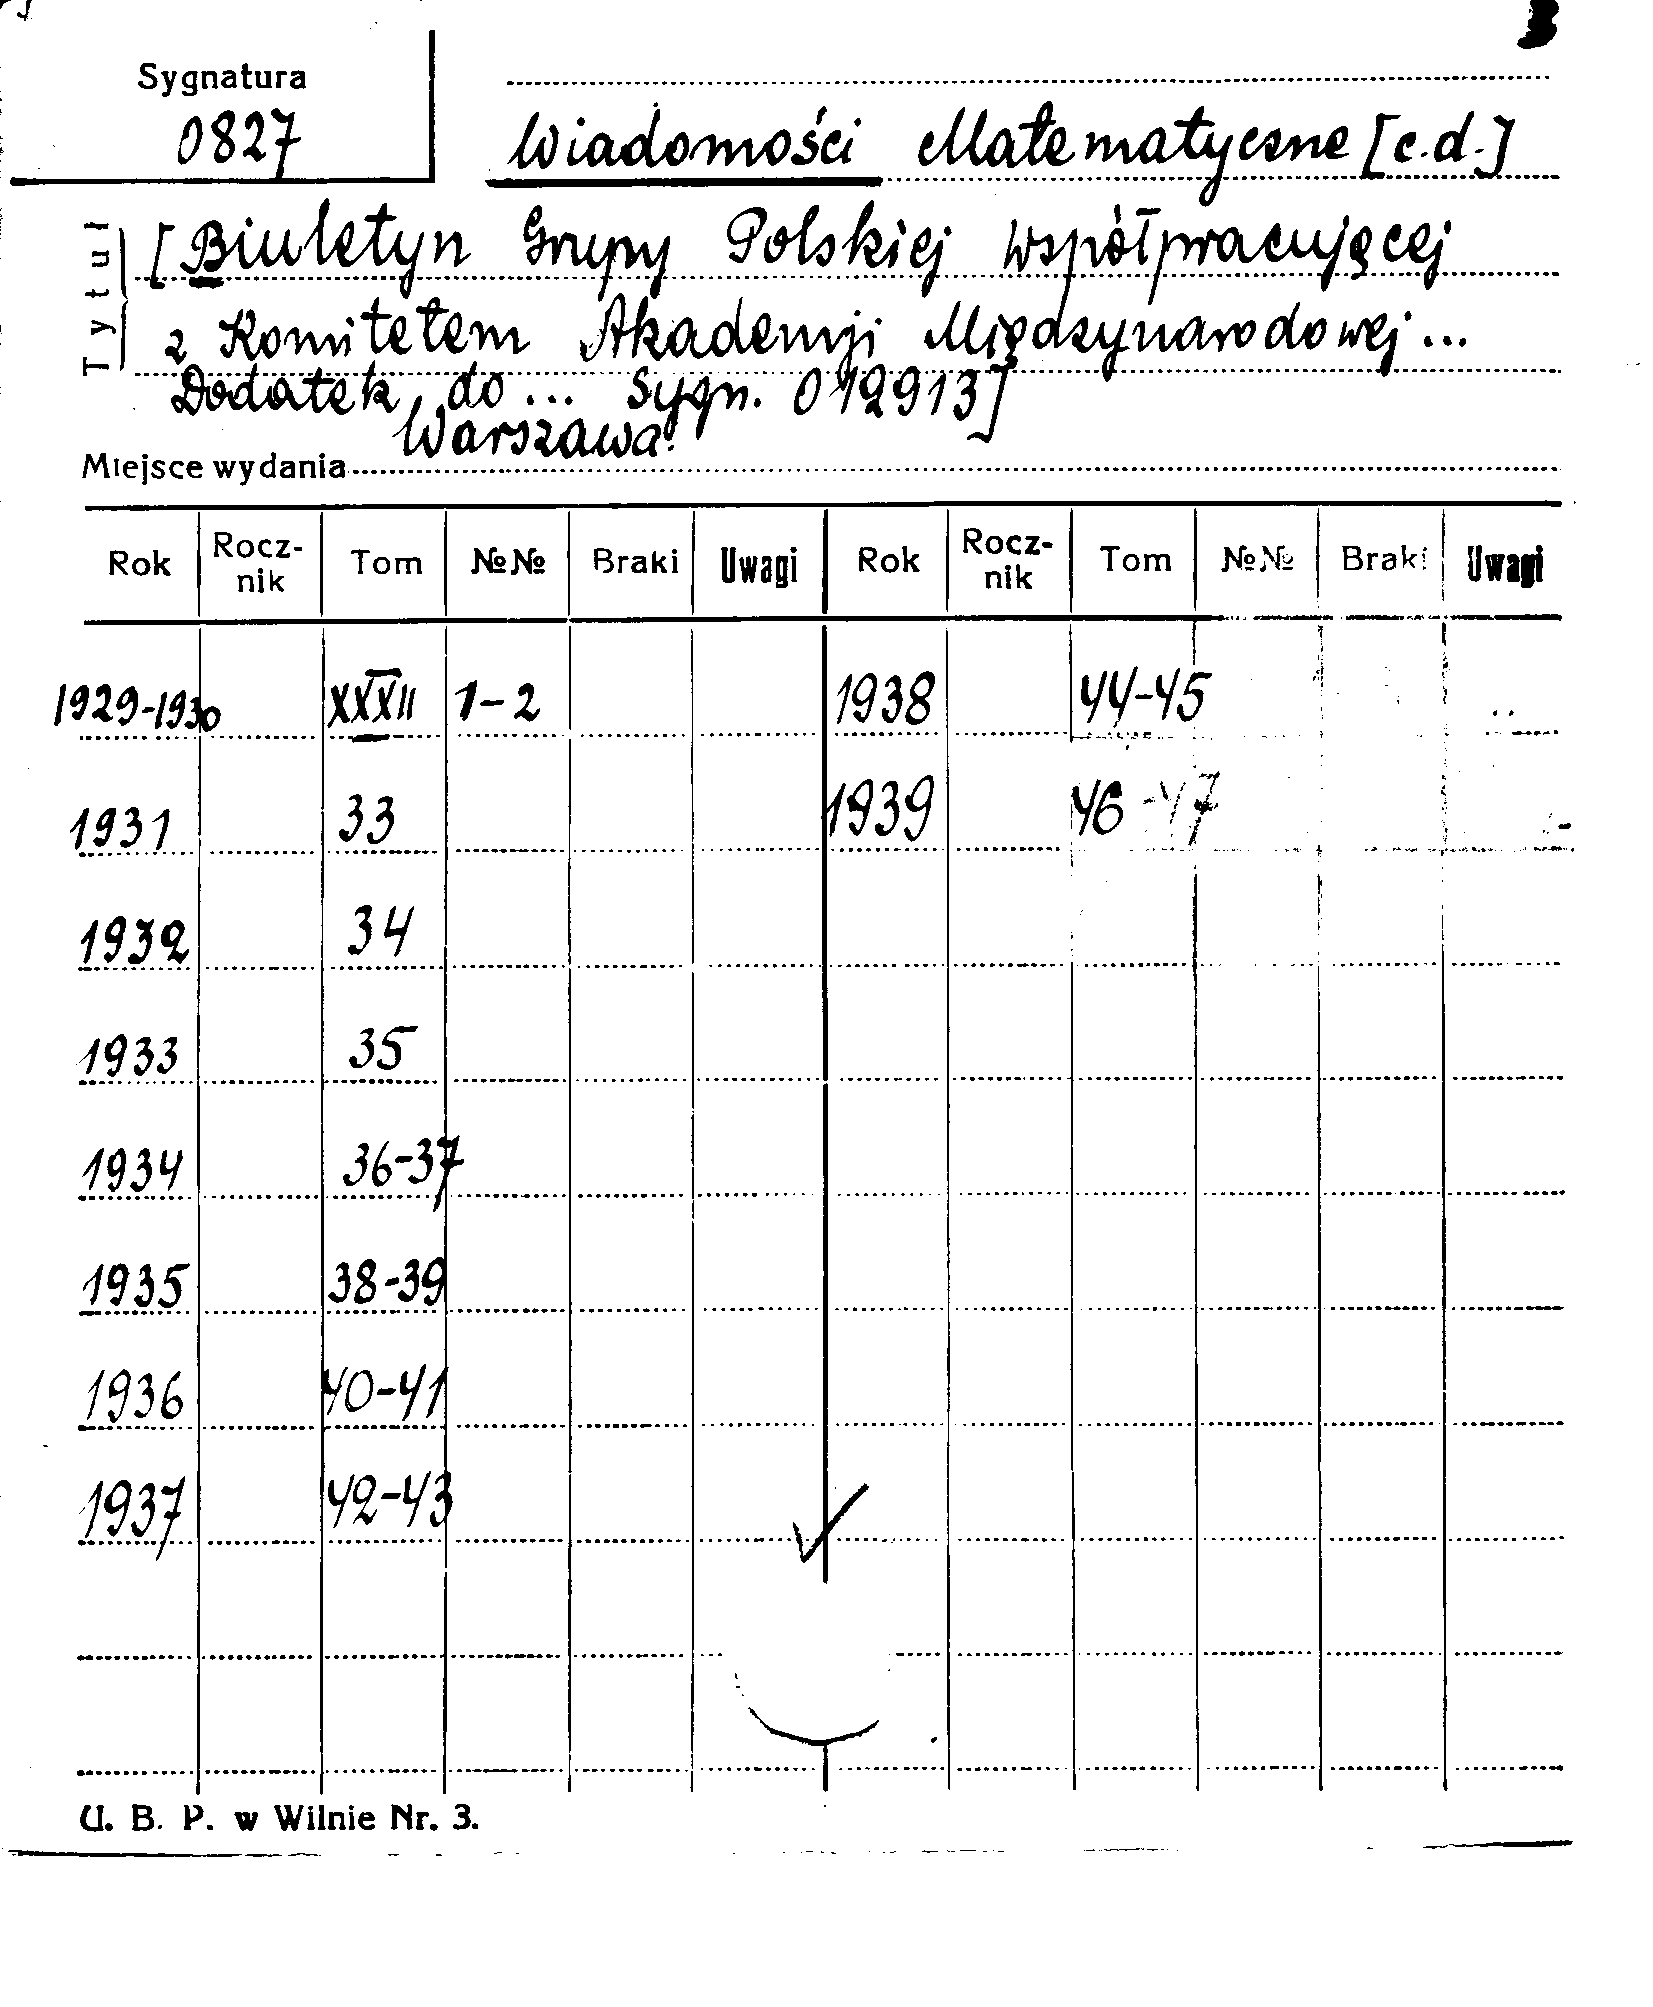 Sygnatura
0827
Wiadomości Matematyczne [c.d.]
Tytuł
[Biuletyn Grupy Polskiej Współpracującej
z Komitetem Akademji Międzynarodowej...
Dodatek do... Sygn. 012913]
Miejsce wydania Warszawa.
Rok Rocz-nik Tom №№ Braki Uwagi Rok Rocz-nik Tom №№ Braki Uwagi
1929-1930 XXXII 1-2 1938 44-45
1931 33 1939 46-47
1932 34
1933 35
1934 36-37
1935 38-39
1936 40-41
1937 42-43
U. B. P. w Wilnie Nr. 3.